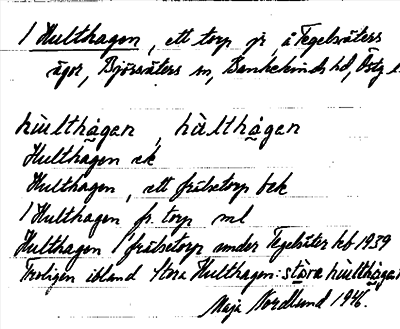 1 Hulthagen, ett torp fr, å Tegelsäters
ägor, Björsäters sn, Bankekinds hd, Östg l.
hùlthàgan, hùlthàgan
Hulthagen ek
Hulthagen, ett frälsetorp bek
1 Hulthagen fr. torp ml
Hulthagen 1 frälsetorp under Tegelsäter hb 1939
Troligen ibland Stora Hulthagen: stòra hùlthàgan
Maja Nordlund 1946.